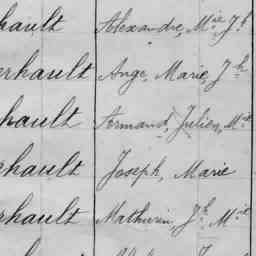 hault Alexandre, Mie Jh
erhault Ange, Marie, Jh
hault Armand, Julien, Mie
hault Joseph, Marie
rhault Mathurin, Jh Mie